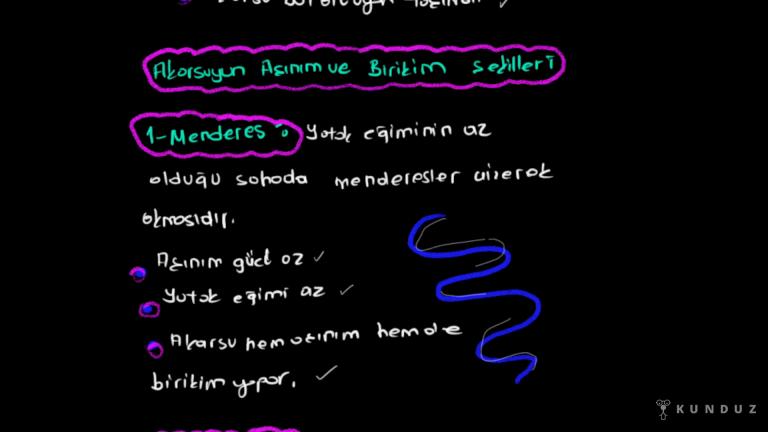 Akarsuyun Aşınım ve Birikim şekilleri
1-Menderes: Yatak eğiminin az
olduğu sahada menderesler çizerek
akmasıdır.
Aşınım gücü az
Yatak eğimi az
Akarsu hem aşınım hem de
birikim yapar.
KUNDUZ